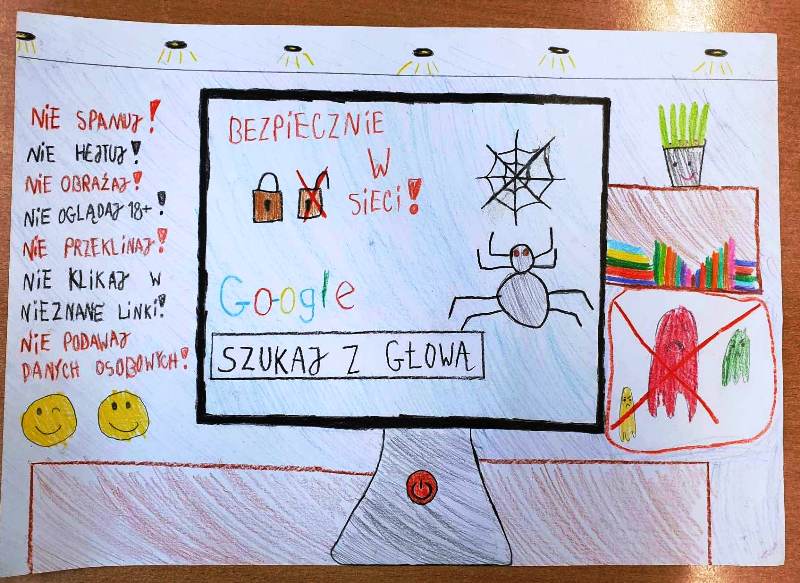 NIE SPAMUJ!
NIE HEJTUJ!
NIE OBRAŻAJ!
NIE OGLĄDAJ 18+!
NIE PRZEKLINAJ!
NIE KLIKAJ W
NIEZNANE LINKI!
NIE PODAWAJ
DANYCH OSOBOWYCH!
BEZPIECZNIE
W
SIECI!
Google
SZUKAJ Z GŁOWĄ